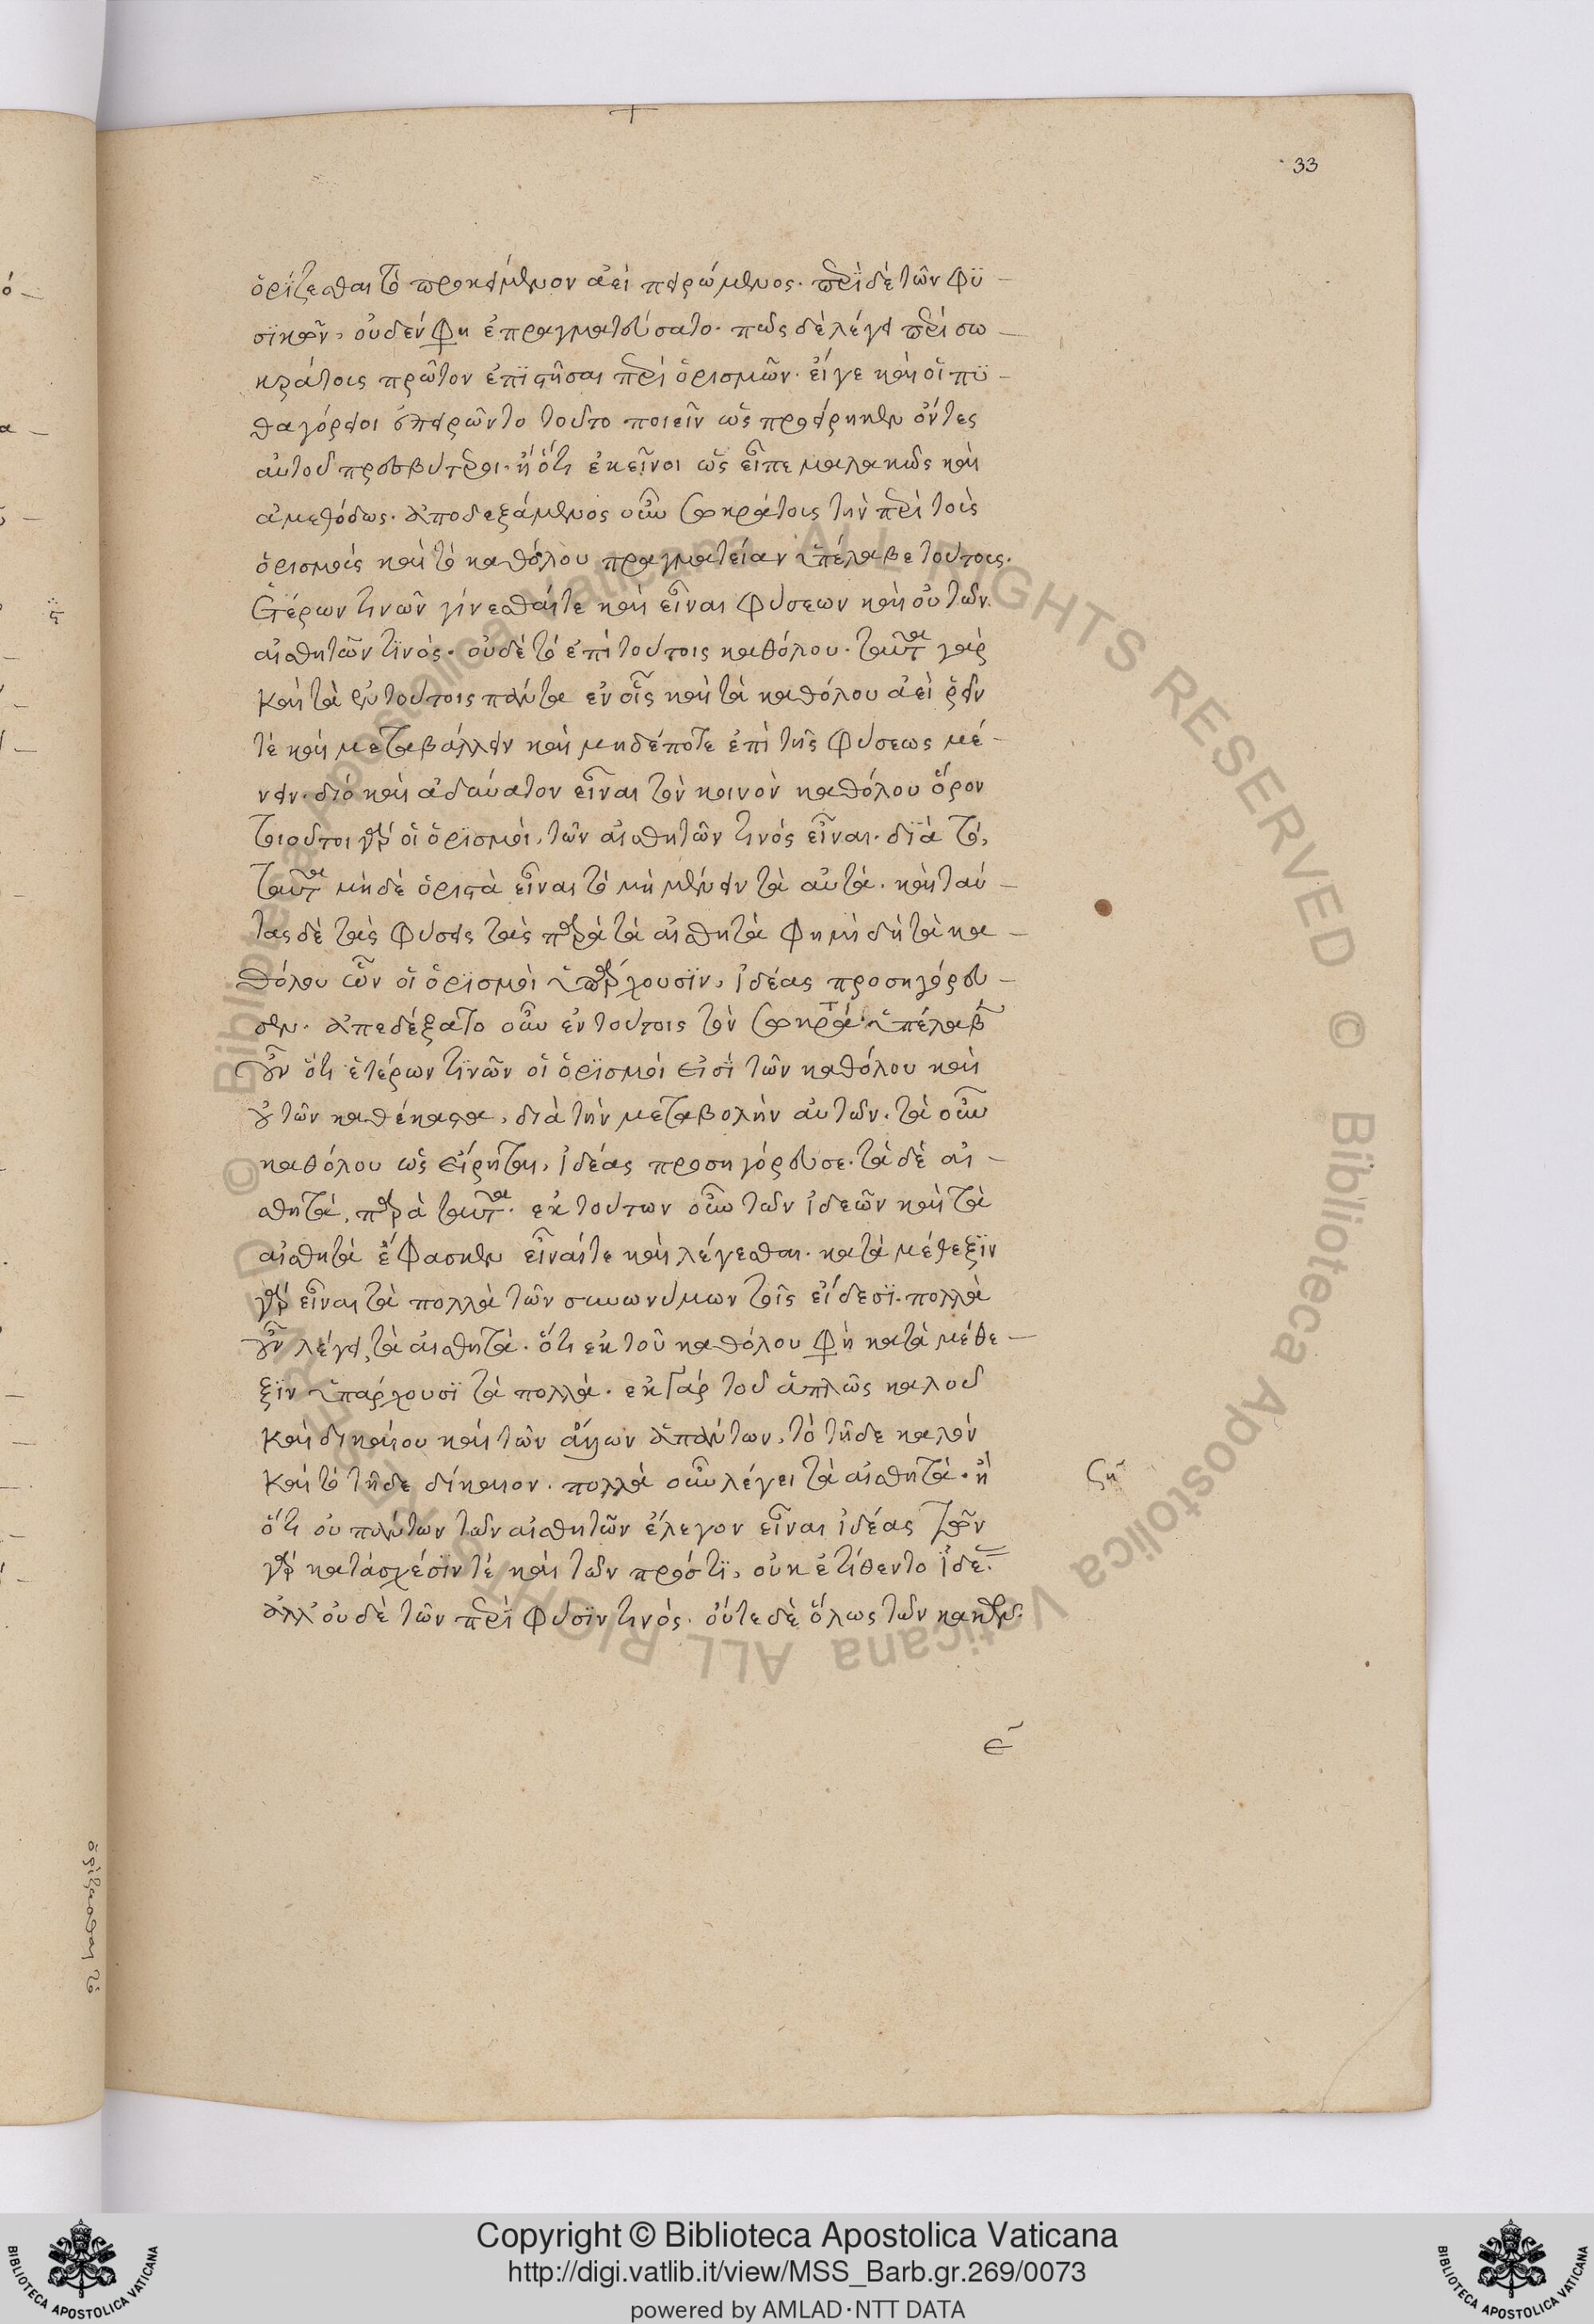 33
ὁρίζεσθαι τὸ προκείμενον ἀεὶ πειρώμενος. περὶ δὲ τῶν φυ-
σικῶν, οὐδέν φη ἐπραγματεύσατο. πῶς δὲ λέγει περὶ σω-
κράτους πρῶτον ἐπιστῆσαι περὶ ὁρισμῶν. εἴγε καὶ οἱ πυ-
θαγόρειοι ἐπειρῶντο τοῦτο ποιεῖν ὡς προείρηκεν ὄντες
αὐτοῦ πρεσβύτεροι. ἢ ὅτι ἐκεῖνοι ὡς εἶπε μαλακῶς καὶ
ἀμεθόδως. ἀποδεξάμενος οὖν σωκράτους τὴν περὶ τοὺς
ὁρισμοὺς καὶ τὸ καθόλου πραγματείαν ὑπέλαβε τούτους.
ἑτέρων τινῶν γίνεσθαί τε καὶ εἶναι φύσεων καὶ οὐ τῶν
αἰσθητῶν τινὸς. οὐδὲ τὸ ἐπὶ τούτοις καθόλου. ταῦτα γὰρ
καὶ τὰ ἐν τούτοις πάντα ἐν οἷς καὶ τὰ καθόλου ἀεὶ ῥεῖν
τὲ καὶ μεταβάλλειν καὶ μηδέποτε ἐπὶ τῆς φύσεως μέ-
νειν. διὸ καὶ ἀδύνατον εἶναι τὸν κοινὸν καθόλου ὅρον
τοιοῦτοι γὰρ οἱ ὁρισμοὶ, τῶν αἰσθητῶν τινός εἶναι. διὰ τὸ,
ταῦτα μηδὲ ὁριστὰ εἶναι τὸ μὴ μένειν τὰ αὐτά. καὶ ταύ-
τας δὲ τὰς φύσεις τὰς παρὰ τὰ αἰσθητὰ φημὶ δὴ τὰ κα-
θόλου ὧν οἱ ὁρισμοὶ ὑπάρχουσιν, ἰδέας προσηγόρευ-
σεν. ἀπεδέξατο οὖν ἐν τούτοις τὸν σωκρά ὑπέλαβε
γοῦν ὅτι ἑτέρων τινῶν οἱ ὁρισμοί εἰσὶ τῶν καθόλου καὶ
οὐ τῶν καθέκαστα, διὰ τὴν μεταβολὴν αὐτῶν. τὰ οὖν
καθόλου ὡς εἴρηται, ἰδέας προσηγόρευσε. τὰ δὲ αἰ-
σθητὰ, παρὰ ταῦτα. ἐκ τούτων οὖν τῶν ἰδεῶν καὶ τὰ
αἰσθητὰ ἔφασκεν εἶναί τε καὶ λέγεσθαι. κατὰ μέθεξιν
γὰρ εἶναι τὰ πολλὰ τῶν συνωνύμων τοῖς εἴδεσι. πολλὰ
γοῦν λέγει, τὰ αἰσθητά. ὅτι ἐκ τοῦ καθόλου φὴ κατὰ μέθε-
ξιν ὑπάρχουσι τὰ πολλά. ἐκ γὰρ τοῦ ἁπλῶς καλοῦ
καὶ δικαίου καὶ τῶν ἄλλων ἁπάντων, τὸ τῆδε καλὸν
καὶ τὸ τῆδε δίκαιον. πολλὰ οὖν λέγει τὰ αἰσθητὰ. ἢ
ὅτι οὐ πάντων τῶν αἰσθητῶν ἔλεγον εἶναι ἰδέας τῶν
γὰρ κατὰ σχέσιν τὲ καὶ τῶν πρός τι, οὐκ ἐτίθεντο ἰδε.
ἀλλ' οὐδὲ τῶν περὶ φύσιν τινός. οὔτε δὲ ὅλως τῶν κακῶν.
ϛη
ε
ὁρίζεσθαι τὸ
Copyright © Biblioteca Apostolica Vaticana
http://digi.vatlib.it/view/MSS_Barb.gr.269/0073
powered by AMLAD·NTT DATA